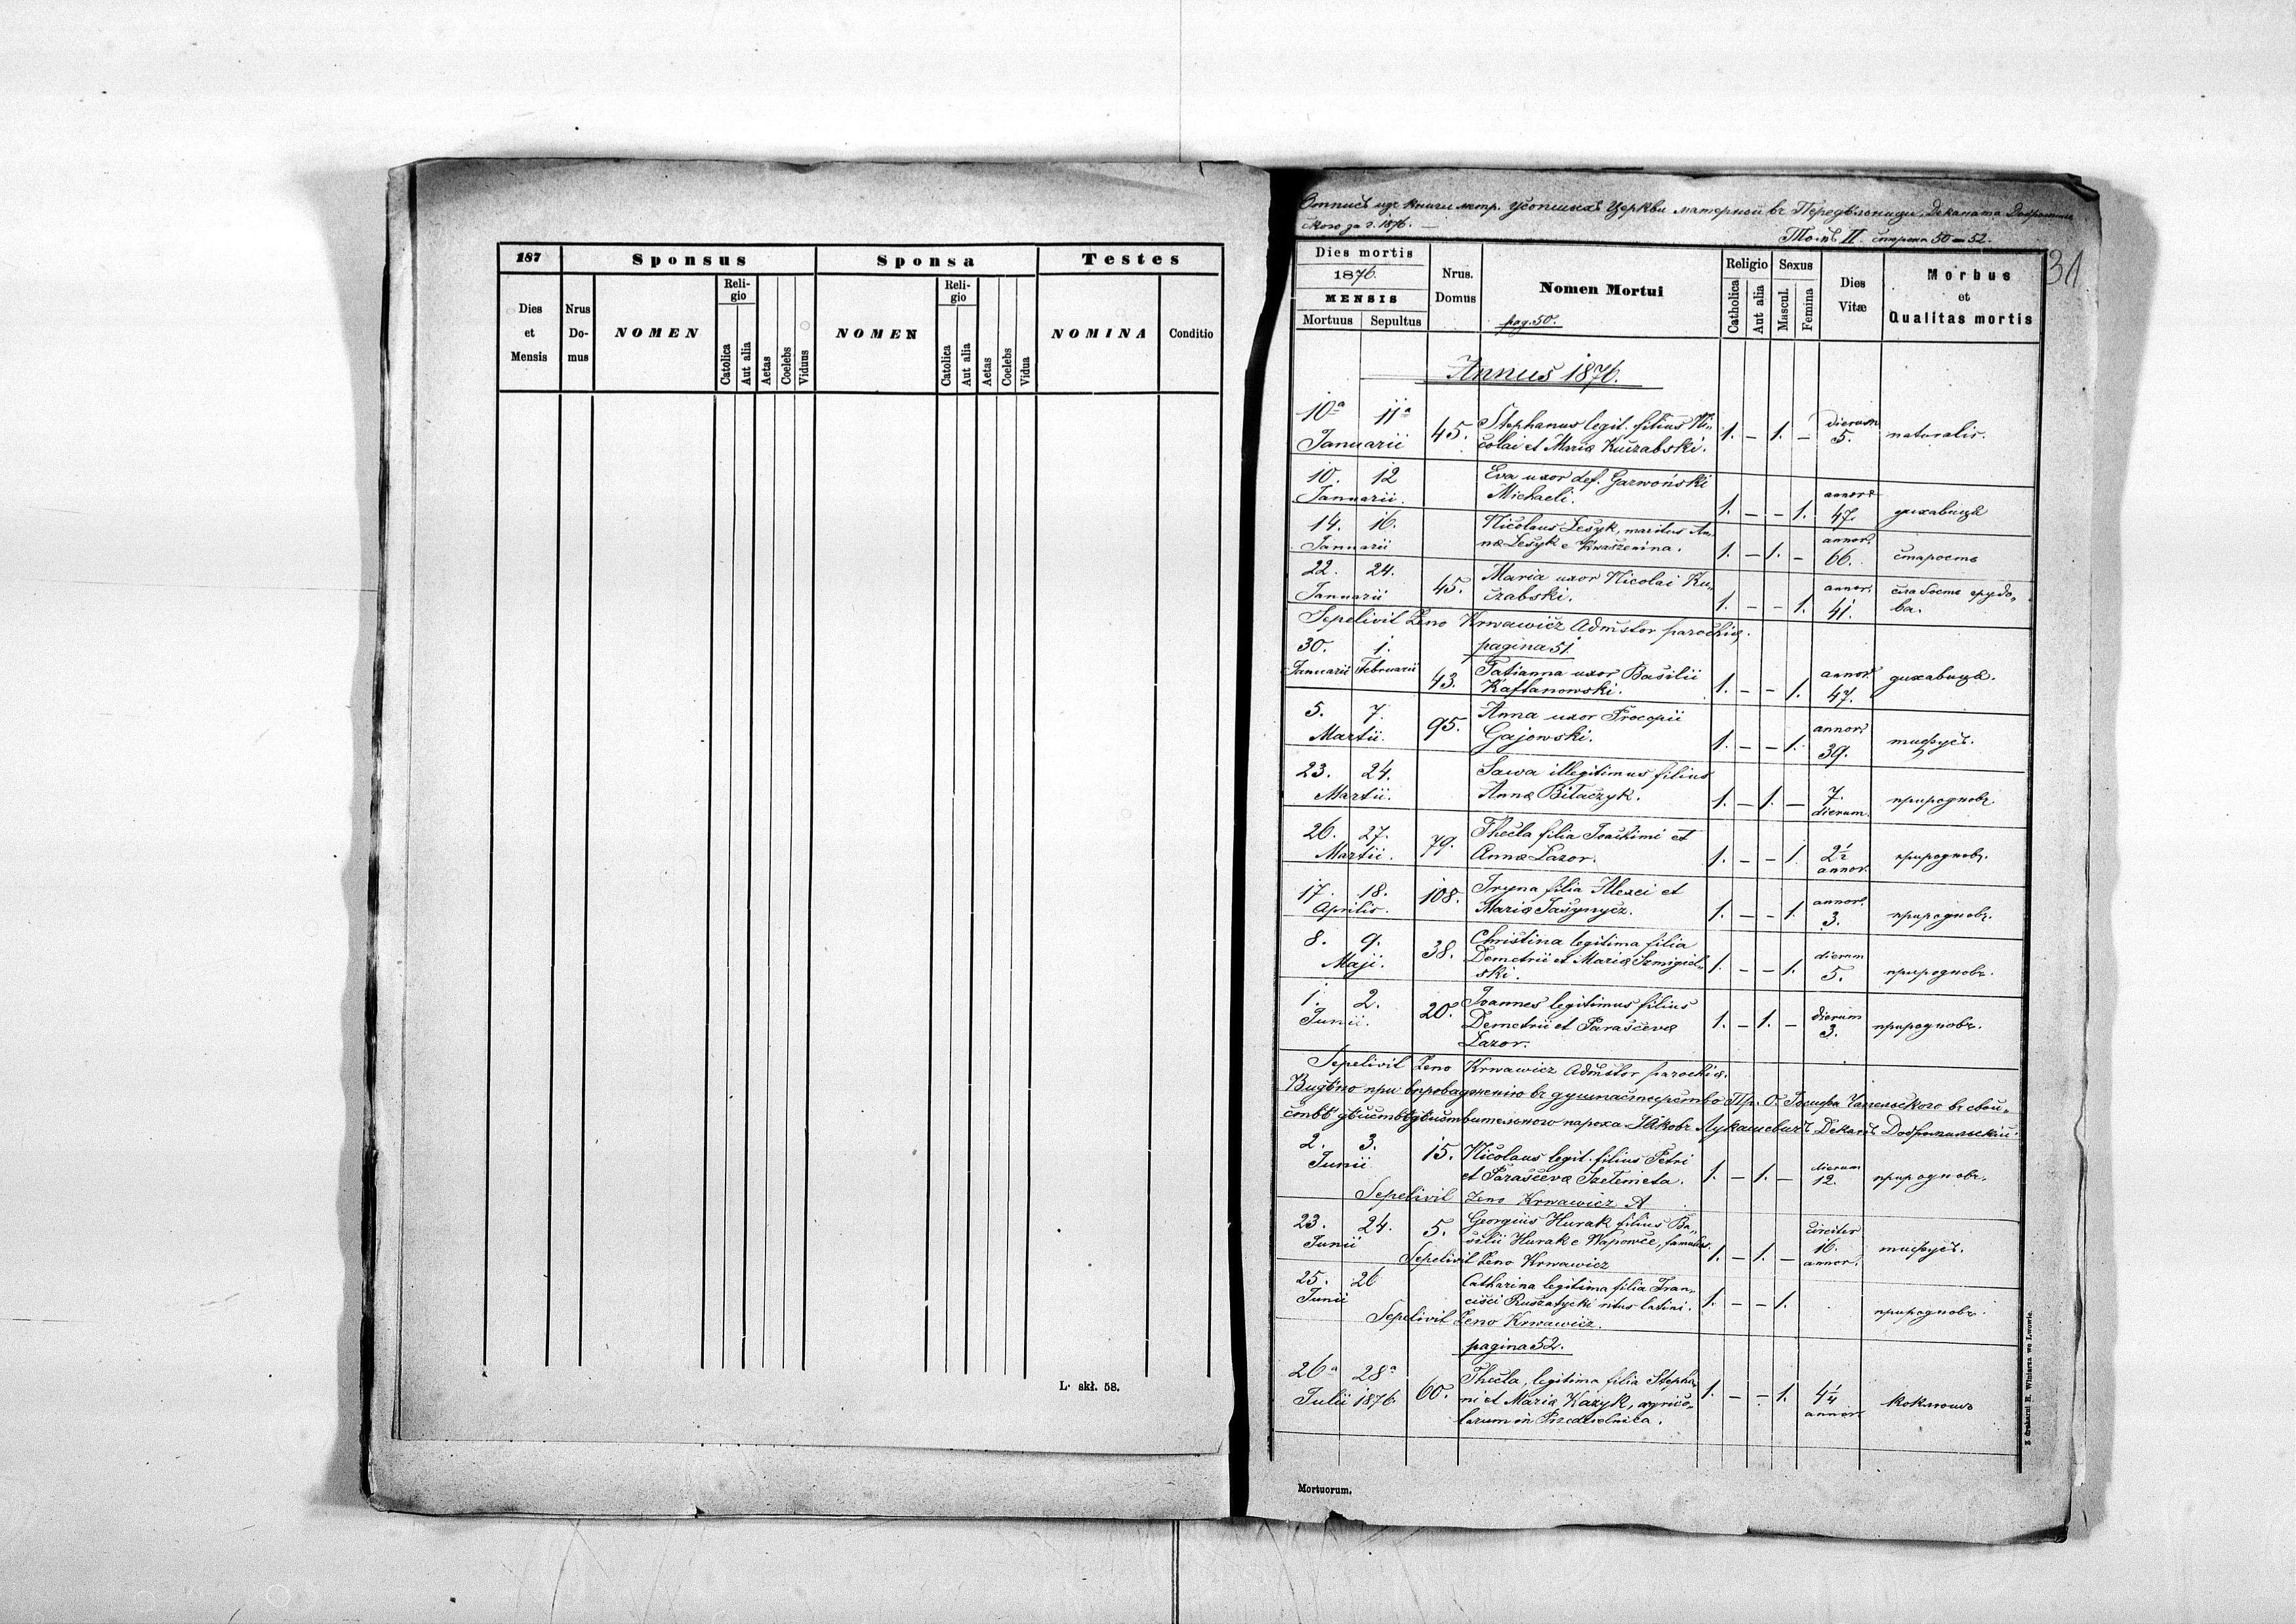 187 Sponsus Sponsa Testes
Dies et Mensis Nrus Domus NOMEN Religio Catolica Aut alia Aetas Coelebs Viduus NOMEN Religio Catolica Aut alia Aetas Coelebs Vidua NOMINA Conditio
L· skł. 58.
Отписъ изъ книги метр. Усопшихъ Церкви матерной въ Передѣльници, Деканата Добромиль-
ского за г. 1876.
Томъ II. сторона 50–52.
31
Dies mortis 1876. MENSIS Mortuus Sepultus
Nrus. Domus
Nomen Mortui
pag. 50.
Religio Catholica Aut alia
Sexus Mascul. Femina
Dies Vitæ
Morbus et Qualitas mortis
Annus 1876.
10ª 11ª Januarii 45. Stephanus legit. filius Ni-
colai et Mariæ Kuczabski. 1. – 1. – dierum 5. naturalis.
10. 12 Januarii. Eva uxor def. Garwoński
Michaeli. 1. – – 1. annor. 47. дихавиця
14. 16. Januarii Nicolaus Lesyk, maritus An-
næ Lesyk e Kwaszenina. 1. – 1. – annor. 66. старость
22. 24. Januarii 45. Maria uxor Nicolai Ku-
czabski. 1. – – 1. annor. 41. слабость грудо-
ва.
Sepelivit Zeno Krwawicz Admstor parochiæ.
pagina 51
30. Januarii 1. Februarii 43. Tatianna uxor Basilii
Kaftanowski. 1. – – 1. annor. 47. дихавиця.
5. 7. Martii. 95. Anna uxor Procopii
Gajowski. 1. – – 1. annor. 39. тифусъ.
23. 24. Martii. Sawa illegitimus filius
Annæ Bitaczyk. 1. – 1. – 7. dierum. природновъ.
26. 27. Martii. 79. Thecla filia Joachimi et
Annæ Lazor. 1. – – 1. 2½ annor. природновъ.
17. 18. Aprilis. 108. Iryna filia Alexei et
Mariæ Jaśynycz. 1. – – 1. annor. 3. природновъ.
8. 9. Maji. 38. Christina legitima filia
Demetrii et Mariæ Szmigiel-
ski. 1. – – 1. dierum 5. природновъ.
1. 2. Junii. 20. Joannes legitimus filius
Demetrii et Parascevæ
Lazor. 1. – 1. – dierum 3. природновъ.
Sepelivit Zeno Krwawicz Admstor parochiæ.
Видѣно при впровадженію въ душпастирство Пр. О. Іосифа Чапельского въ свой-
ствѣ дѣйствительного пароха Яковъ Лукашевичъ Деканъ Добромильскій.
2. 3. Junii 15. Nicolaus legit. filius Petri
et Parascevæ Szelemeta. 1. – 1. – dierum 12. природновъ.
Sepelivit Zeno Krwawicz A.
23. 24. Junii 5. Georgius Hurak filius Ba-
silii Hurak e Wapowce, famulus. 1. – 1. – circiter 16. annor. тифусъ.
Sepelivit Zeno Krwawicz
25. 26 Junii Catharina legitima filia Fran-
cisci Ruszatycki ritus latini. 1. – – 1. природновъ
Sepelivit Zeno Krwawicz.
pagina 52.
26ª 28ª Julii 1876. 60. Thecla, legitima filia Stepha-
ni et Mariæ Kazyk, agrico-
larum in Przedzielnica. 1. – – 1. 4¼ annor. коклюшъ
Mortuorum.
Z drukarni E. Winiarza we Lwowie.